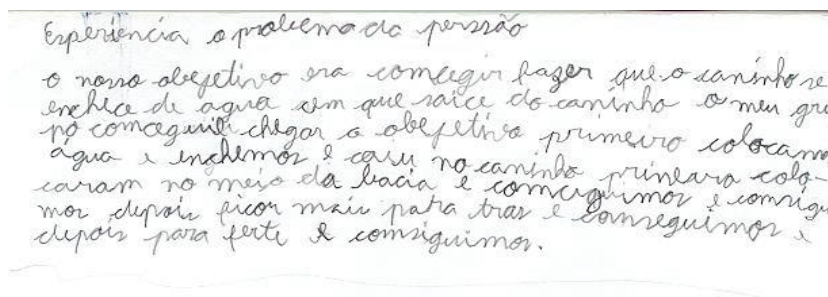 Experiência o problema da persrão
o nosso obejetivo era comcegir fazer que o caninho se
enchece de agua sem que saice do caninho o meu gru
po comceguiu chegar o obejetivo primeiro colocamo
água e enchemos e caiu no caninho primeiro colo-
caram no meio da bacia e comceguimos e comsigui
mos depois ficor mais patra tras e conseguimos e
depois para ferte e comsiguimos.